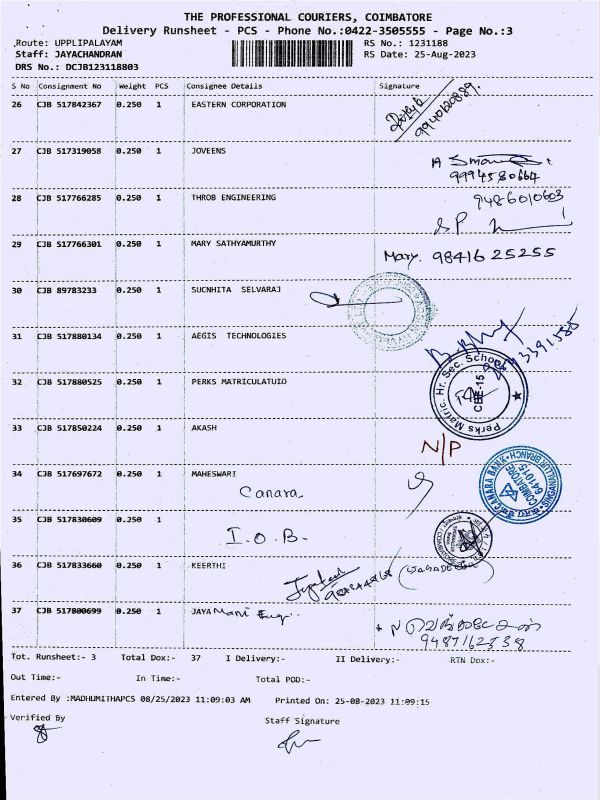 THE PROFESSIONAL COURIERS, COIMBATORE
Delivery Runsheet - PCS - Phone No.:0422-3505555 - Page No.:3
Route: UPPLIPALAYAM RS No.: 1231188
Staff: JAYACHANDRAN RS Date: 25-Aug-2023
DRS No.: DCJB123118803
S No Consignment No Weight PCS Consignee Details Signature
26 CJB 517842367 0.250 1 EASTERN CORPORATION
9940620889.
27 CJB 517319058 0.250 1 JOVEENS
9994580664
28 CJB 517766285 0.250 1 THROB ENGINEERING 9486010603
S.P
29 CJB 517766301 0.250 1 MARY SATHYAMURTHY Mary. 98416 25255
30 CJB 89783233 0.250 1 SUCNHITA SELVARAJ
31 CJB 517880134 0.250 1 AEGIS TECHNOLOGIES
32 CJB 517880525 0.250 1 PERKS MATRICULATUIO
Perks Matric. Hr. Sec. School
CBE-15
33 CJB 517850224 0.250 1 AKASH N/P
34 CJB 517697672 0.250 1 MAHESWARI
Canara
CANARA BANK SINGANALLUR BRANCH
COIMBATORE
641015
35 CJB 517830609 0.250 1
I.O.B.
36 CJB 517833660 0.250 1 KEERTHI
37 CJB 517800699 0.250 1 JAYA Mani Engg.
9487162838
Tot. Runsheet:- 3 Total Dox:- 37 I Delivery:- II Delivery:- RTN Dox:-
Out Time:- In Time:- Total POD:-
Entered By :MADHUMITHAPCS 08/25/2023 11:09:03 AM Printed On: 25-08-2023 11:09:15
Verified By Staff Signature